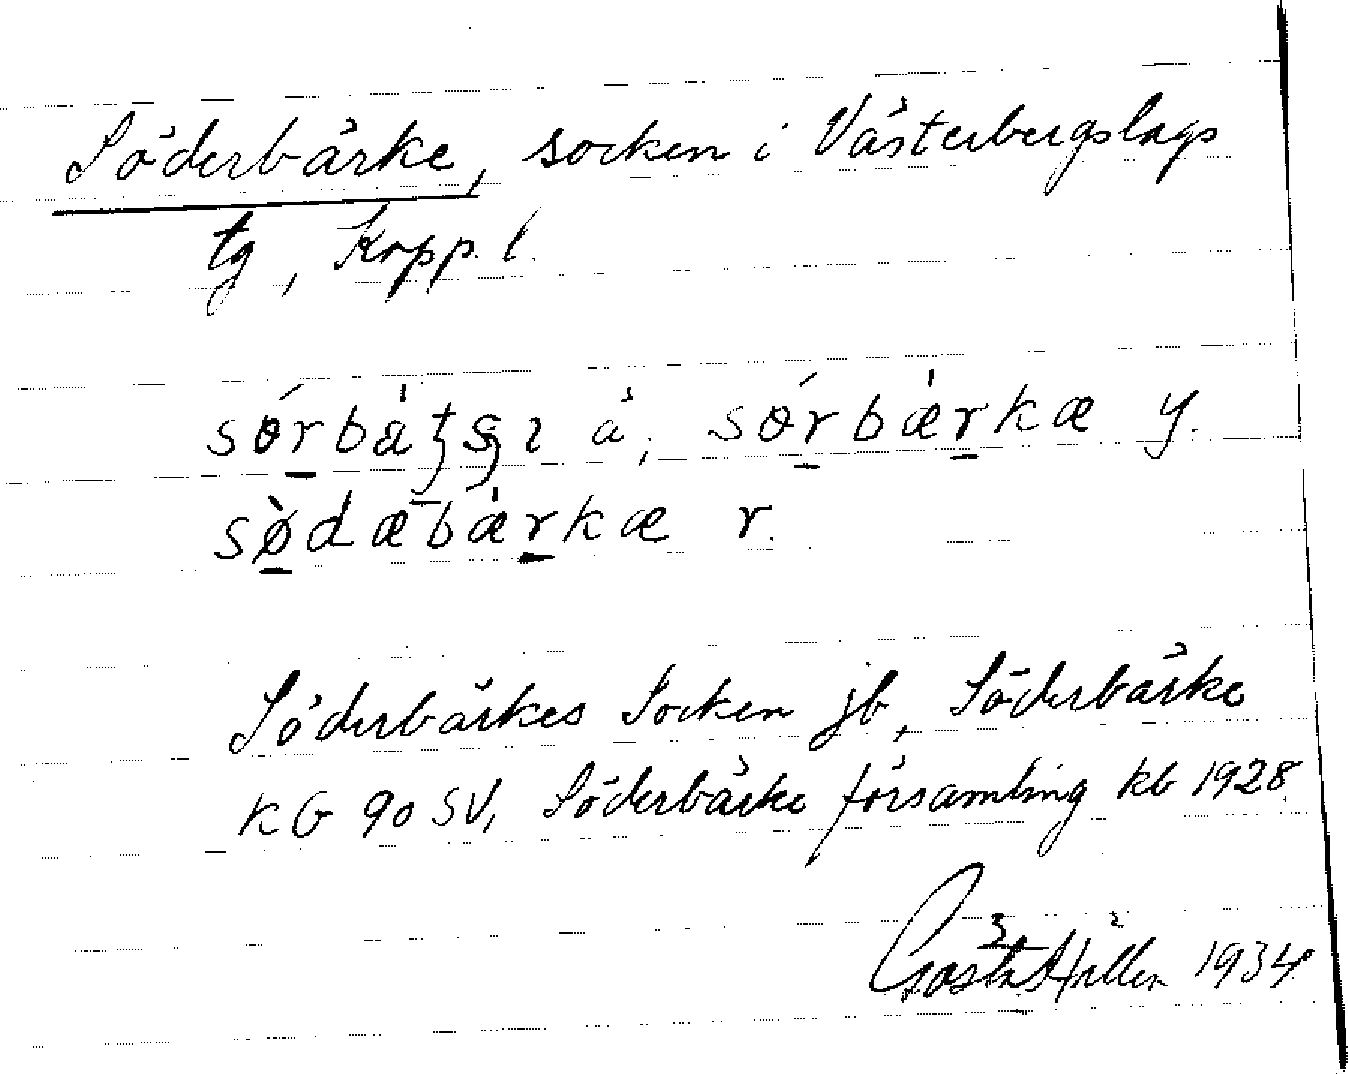 Söderbärke, socken i Västerbergslags
tg, Kopp. l.
sørbätsı ä, sørbærkæ y.
sødæbærkæ r.
Söderbärkes Socken jb, Söderbärke
KG 90 SV, Söderbärke församling kb 1928
Gösta Hillén 1934